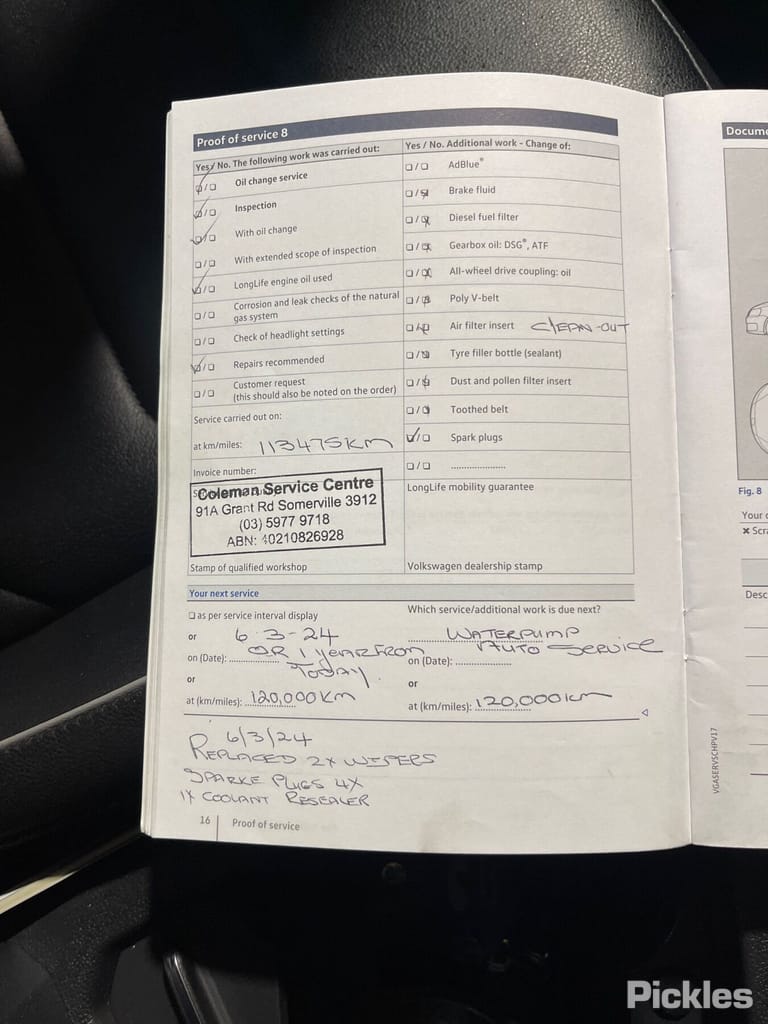 Proof of service 8
Yes / No. The following work was carried out:
Oil change service
Inspection
With oil change
With extended scope of inspection
LongLife engine oil used
Corrosion and leak checks of the natural
gas system
Check of headlight settings
Repairs recommended
Customer request
(this should also be noted on the order)
Service carried out on:
at km/miles: 113475KM
Invoice number:
Coleman Service Centre
91A Grant Rd Somerville 3912
(03) 5977 9718
ABN: 40210826928
Stamp of qualified workshop
Yes / No. Additional work - Change of:
AdBlue®
Brake fluid
Diesel fuel filter
Gearbox oil: DSG®, ATF
All-wheel drive coupling: oil
Poly V-belt
Air filter insert CLEAN-OUT
Tyre filler bottle (sealant)
Dust and pollen filter insert
Toothed belt
Spark plugs
LongLife mobility guarantee
Volkswagen dealership stamp
Your next service
as per service interval display
or 6 3-24
on (Date): OR 1 YEAR FROM
TODAY.
or
at (km/miles): 120,000KM
Which service/additional work is due next?
WATERPUMP
AUTO SERVICE
on (Date):
or
at (km/miles): 120,000KM
6/3/24
REPLACED 2X WIPERS
SPARKE PLUGS 4X
1X COOLANT RESEALER
16 Proof of service
VGASERVSCHPV17
Docume
Fig. 8
Your
Scr
Desc
Pickles